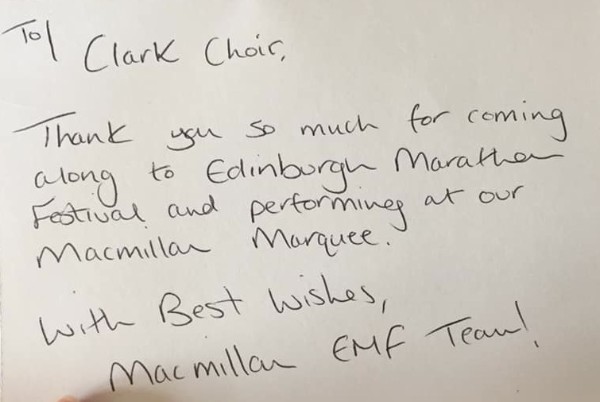 To/
Clark Choir,
Thank you so much for coming
along to Edinburgh Marathon
Festival and performing at our
Macmillan Marquee.
With Best Wishes,
Macmillan EMF Team!